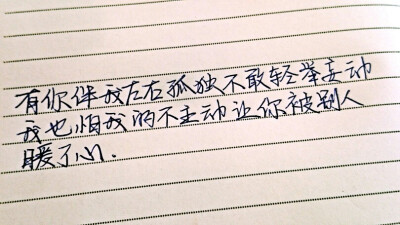 有你伴我左右孤独不敢轻举妄动
我也怕我的不主动让你被别人
暖了心.